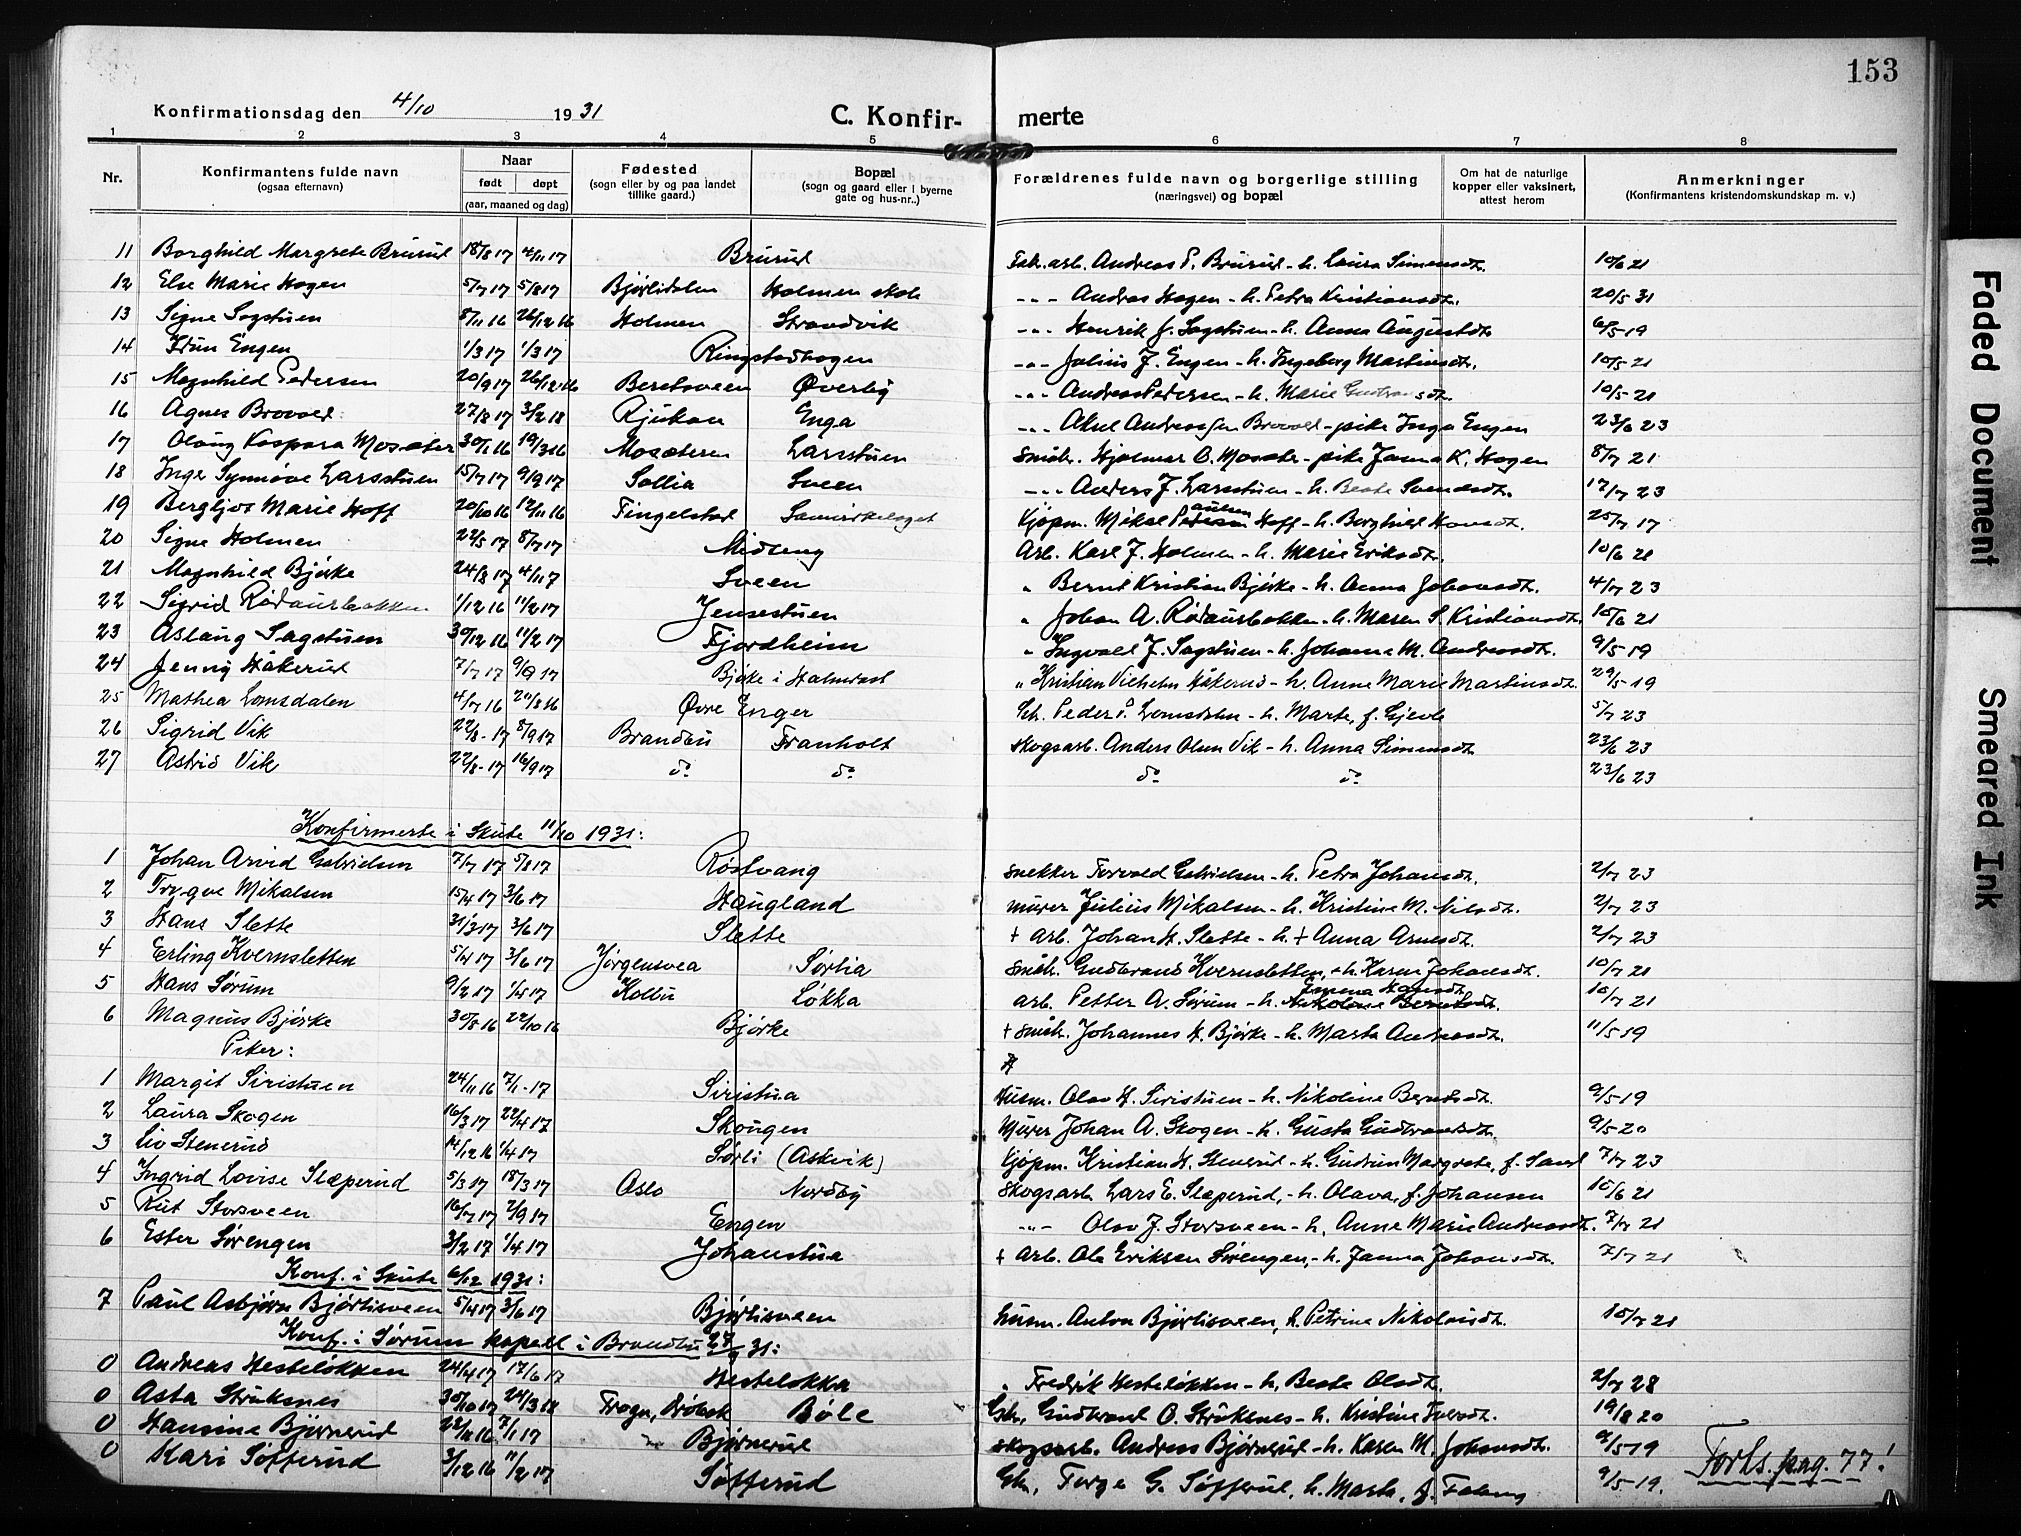 153
Konfirmationsdag den 4/10 1931 C. Konfirmerte
1 2 3 4 5 6 7 8
Nr. Konfirmantens fulde navn (ogsaa efternavn) Naar født døpt (aar, maaned og dag) Fødested (sogn eller by og paa landet tillike gaard.) Bopæl (sogn og gaard eller i byerne gate og hus-nr.) Forældrenes fulde navn og borgerlige stilling (næringsvei) og bopæl Om hat de naturlige kopper eller vaksinert, attest herom Anmerkninger (Konfirmantens kristendomskundskap m. v.)
11 Borghild Margrete Brurud 18/8 17 4/11 17 Brurud Fab.arb. Andreas P. Brurud - h. Laura Simensdt. 10/6 21
12 Else Marie Hagen 5/7 17 5/8 17 Bjørlidalen Holmen skole -"- Andreas Hagen - h. Petra Kristiansdt. 20/5 31
13 Signe Sagstuen 8/11 16 26/12 16 Holmen Strandvik -"- Henrik J. Sagstuen - h. Anna Augustdt. 6/5 19
14 Idun Engen 1/3 17 1/3 17 Ringstadhagen -"- Julius J. Engen - h. Ingeborg Martinsdt. 10/5 21
15 Magnhild Pedersen 20/9 17 26/12 16 Beretsveen Øverby -"- Andreas Pedersen - h. Marie 10/5 21
16 Agnes Brovold 27/8 17 3/2 18 Rjukan Enga -"- Aksel Andreassen Brovold - pike Inga Engen 23/6 23
17 Olaug Kaspara Mosæter 30/1 16 19/3 16 Mosæteren Larsstuen Småbr. Hjalmar O. Mosæter - pike Janna K. Hagen 8/7 21
18 Inger Synnøve Larsstuen 15/7 17 9/9 17 Sollia Sveen -"- Anders J. Larsstuen - h. Beate Svensdt. 17/7 23
19 Bergljot Marie Hoff 20/10 16 12/11 16 Tingelstad Samvirkelaget Kjøpm. Mikael Paulsen Hoff - h. Borghild Hansdt. 25/7 17
20 Signe Holmen 22/5 17 8/7 17 Midteng Arb. Karl J. Holmen - h. Marie Eriksdt. 10/6 21
21 Magnhild Bjørke 24/8 17 4/11 7 Sveen " Bernt Kristian Bjørke - h. Anna Johansdt. 4/7 23
22 Sigrid Rødausbakken 1/12 16 11/2 17 Jensestuen " Johan A. Rødausbakken - h. Maren S. Kristiansdt. 10/6 21
23 Aslaug Sagstuen 30/12 16 11/2 17 Fjordheim " Ingvald J. Sagstuen - h. Johanne M. Andreasdt. 9/5 19
24 Jenny Håkerud 7/7 17 9/9 17 Bjørke i Halmrast " Kristian Vilhelm Håkerud - h. Anne Marie Martinsdt. 29/5 19
25 Mathea Lomsdalen 4/7 16 20/8 16 Øvre Enger Gb. Peder P. Lomsdalen - h. Marte, f. Gjevle 5/7 23
26 Sigrid Vik 22/8 - 17 8/9 17 Brandbu Framholt Skogsarb. Anders Olsen Vik - h. Anna Simensdt. 23/6 23
27 Astrid Vik 22/8 - 17 16/9 17 do do do do 23/6 23
Konfirmerte i Skute 11/10 1931:
1 Johan Arvid Gabrielsen 7/7 17 5/8 17 Røstvang Snekker Torvald Gabrielsen - h. Petra Johansdt. 2/7 23
2 Trygve Mikalsen 15/4 17 3/6 17 Haugland Murer Julius Mikalsen - h. Kristine M. Nilsdt. 2/7 23
3 Hans Slette 31/3 17 3/6 17 Slette + Arb. Johan H. Slette - h. + Anna Arnesdt. 2/7 23
4 Erling Kvernsletten 5/4 17 3/6 17 Jørgensvea Sørlia Småbr. Gudbrand Kvernsletten, - h. Karen Johansdt. 10/7 21
5 Hans Sørum 9/2 17 1/4 17 Kolbu Løkka Arb. Petter A. Sørum - h. Emma Hansdt. 10/7 21
6 Magnus Bjørke 30/8 16 22/10 16 Bjørke + Småbr. Johannes H. Bjørke - h. Marte Andreasdt. 11/5 19
Piker:
1 Margit Siristuen 24/11 16 7/1 - 17 Siristua Husm. Olav H. Siristuen - h. Nikoline Berntsdt. 9/5 19
2 Laura Skogen 16/3 17 22/4 17 Skougen Murer Johan A. Skogen - h. Gusta Gudbrandsdt. 9/5 20
3 Liv Stenerud 14/12 16 1/4 17 Sørli (Askvik) Kjøpm. Kristian H. Stenerud - h. Gudrun Margrete, f. Sand 7/7 23
4 Ingrid Lovise Slæperud 5/3 17 18/3 17 Oslo Nordby Skogsarb. Lars E. Slæperud, - h. Olava, f. Johansen 10/6 21
5 Rut Storsveen 16/7 17 2/9 17 Engen -"- Olav J. Storsveen - h. Anne Marie Andreasdt. 7/7 21
6 Ester Sørengen 3/2 17 1/4 17 Johanstua + Arb. Ole Eriksen Sørengen, - h. Janna Johansdt. 7/7 21
Konf. i Skute 6/12 1931:
7 Paul Asbjørn Bjørlisveen 5/4 17 3/6 17 Bjørlisveen Husm. Anton Bjørlisveen, h. Petrine Nikolaisdt. 10/7 21
Konf. i Sørum kapell i Brandbu 27/9 31:
0 Andreas Hesteløkken 24/4 17 17/6 17 Hesteløkka " Fredrik Hesteløkken - h. Beate Olsdt. 2/7 28
0 Asta Strüksnes 30/10 17 24/3 18 Frogn, Drøbak Bøle Gbr. Gudbrand O. Strüksnes - h. Kristine 19/8 20
0 Hansine Bjørnerud 22/11 16 7/1 17 Bjørnerud Skogsarb. Andreas Bjørnerud - h. Karen M. Johansdt. 9/5 19
0 Kari Søfferud 3/12 16 11/2 17 Søfferud Gbr. Torge G. Søfferud, h. Marte, f. 9/5 19.
Forts. pag. 77!
Faded Document
Smeared Ink